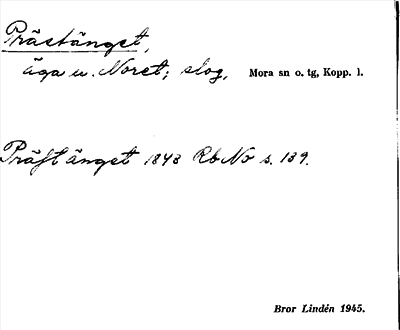 Prästänget,
äga u. Noret; slog, Mora sn o. tg, Kopp. l.
Präst änget 1848 Rb No s. 139.
Bror Lindén 1945.